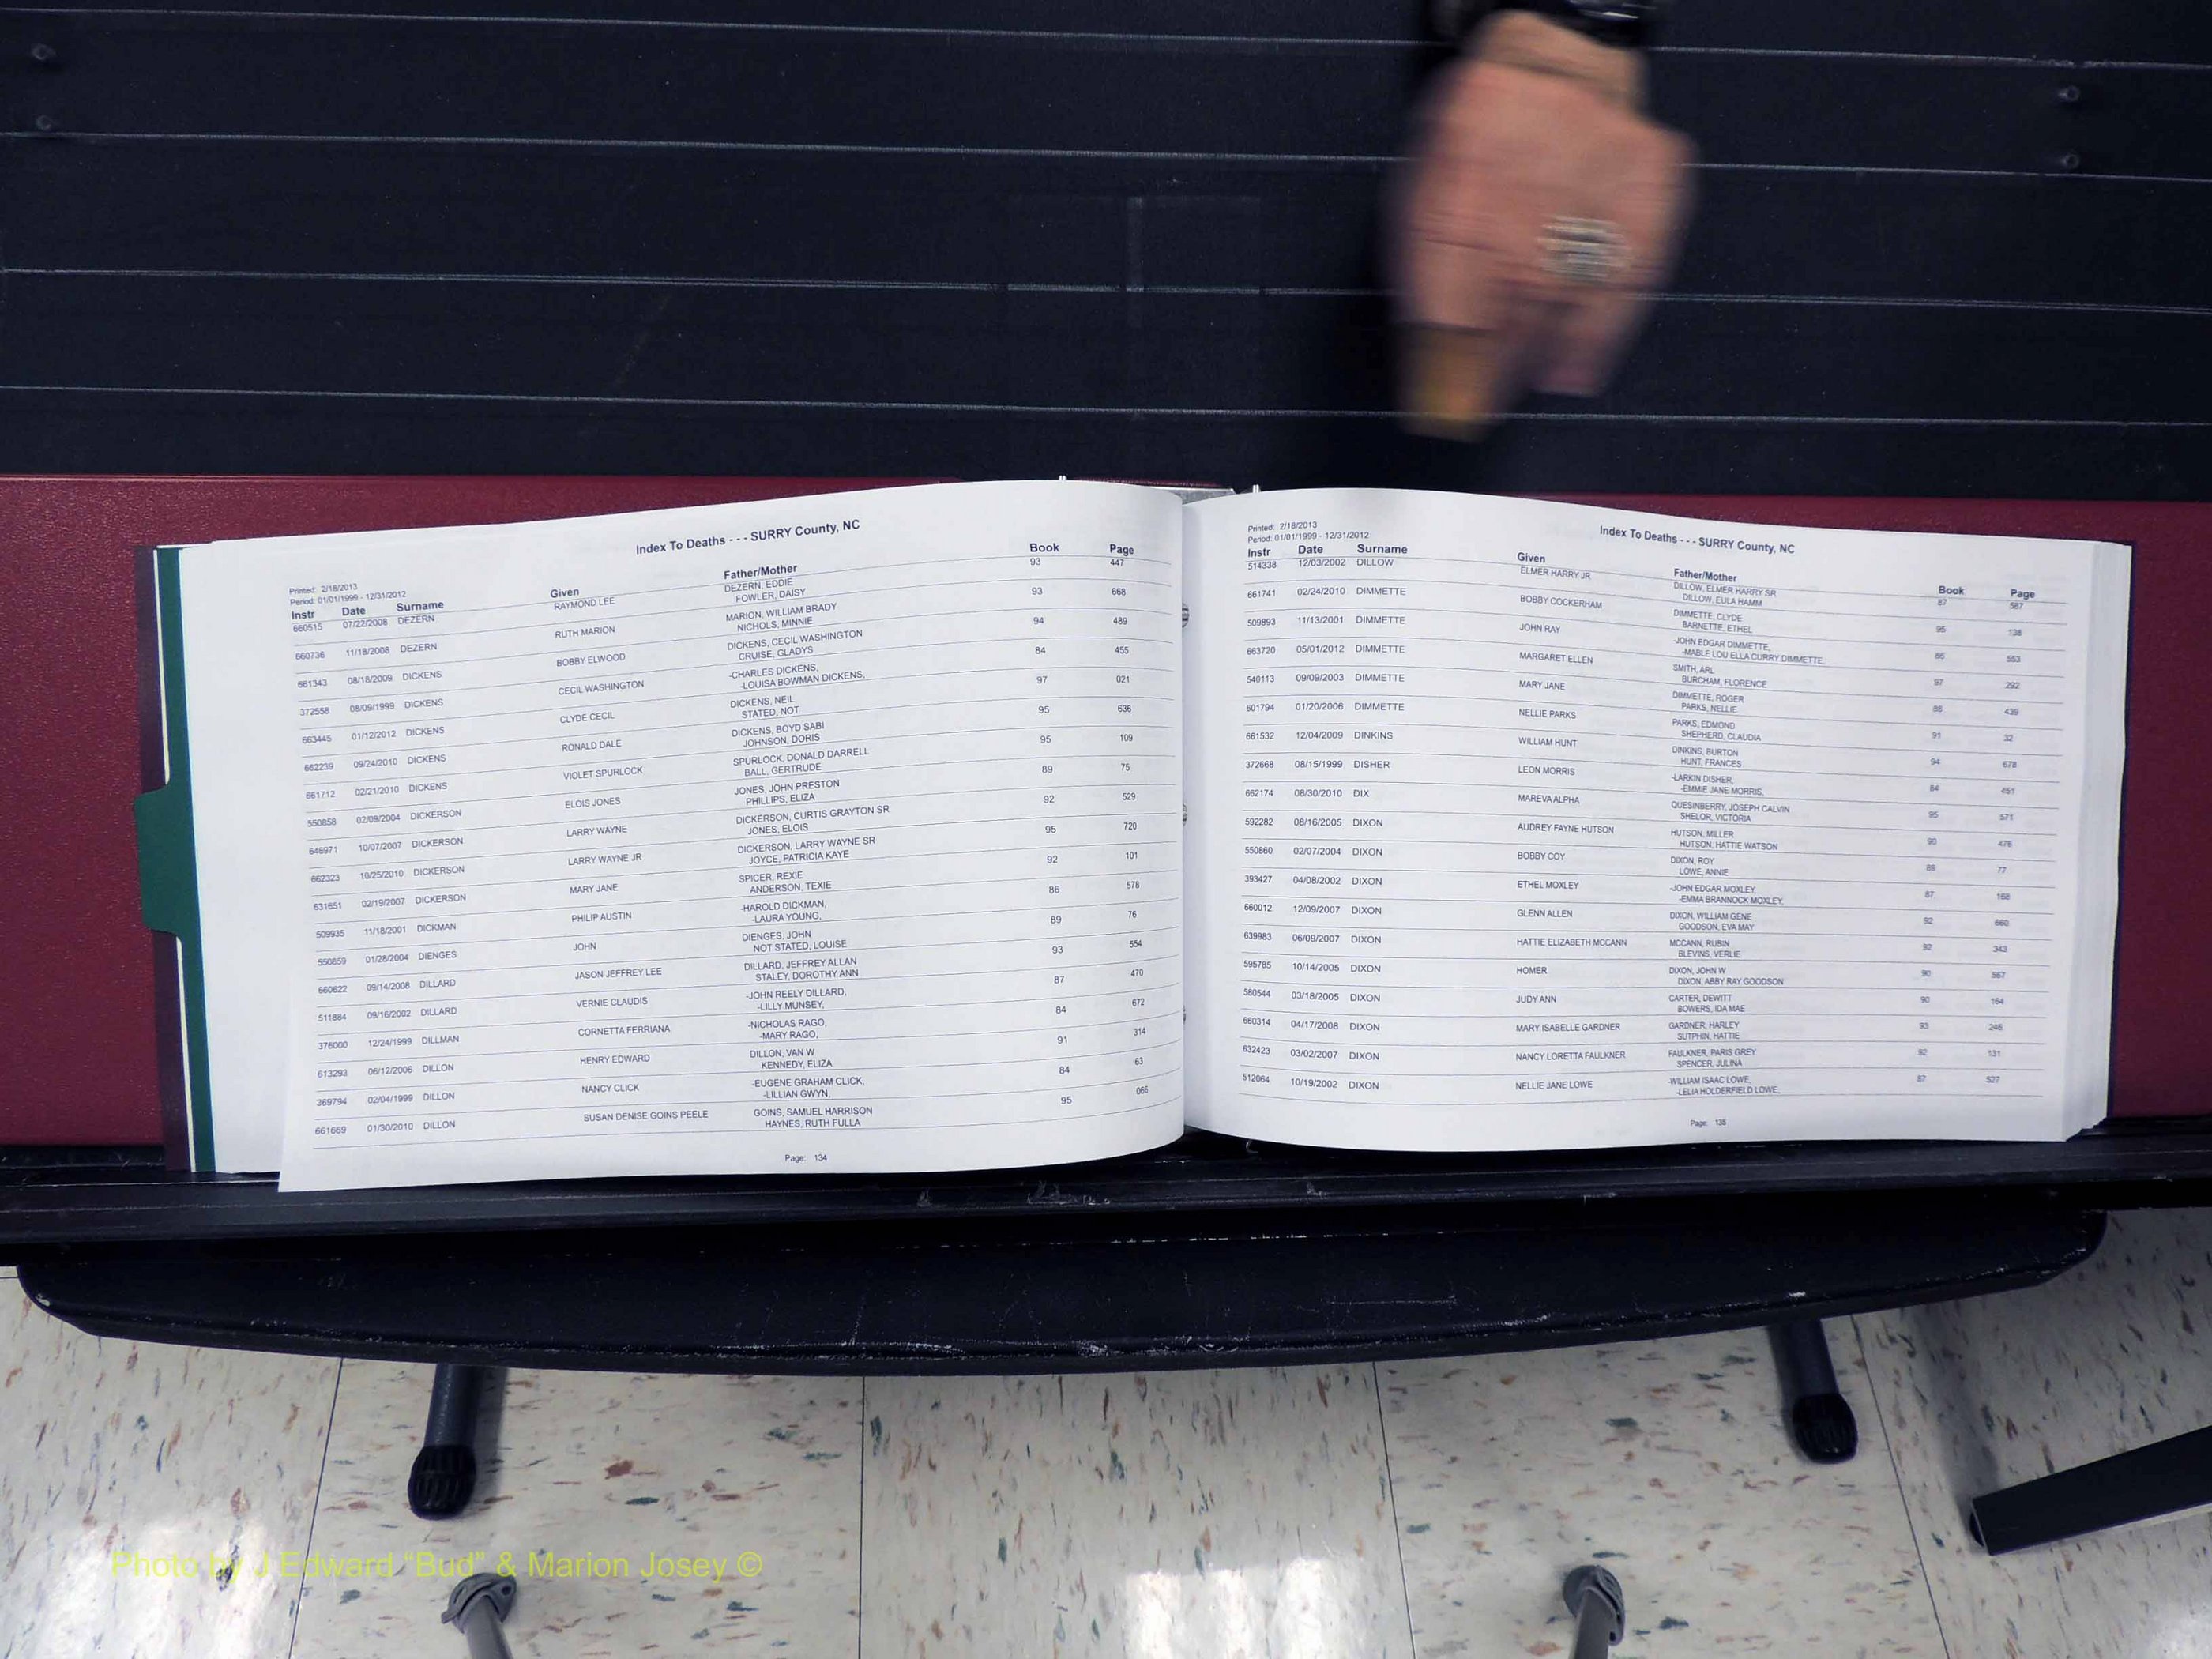 Index To Deaths - - - SURRY County, NC
Printed: 2/18/2013
Period: 01/01/1999 - 12/31/2012
Instr Date Surname Given Father/Mother Book Page
660515 07/22/2008 DEZERN RAYMOND LEE DEZERN, EDDIE 93 447
FOWLER, DAISY
660736 11/18/2008 DEZERN RUTH MARION MARION, WILLIAM BRADY 93 668
NICHOLS, MINNIE
661343 08/18/2009 DICKENS BOBBY ELWOOD DICKENS, CECIL WASHINGTON 94 489
CRUISE, GLADYS
372558 08/09/1999 DICKENS CECIL WASHINGTON -CHARLES DICKENS, 84 455
-LOUISA BOWMAN DICKENS,
663445 01/12/2012 DICKENS CLYDE CECIL DICKENS, NEIL 97 021
STATED, NOT
662239 09/24/2010 DICKENS RONALD DALE DICKENS, BOYD SABI 95 636
JOHNSON, DORIS
661712 02/21/2010 DICKENS VIOLET SPURLOCK SPURLOCK, DONALD DARRELL 95 109
BALL, GERTRUDE
550858 02/09/2004 DICKERSON ELOIS JONES JONES, JOHN PRESTON 89 75
PHILLIPS, ELIZA
646971 10/07/2007 DICKERSON LARRY WAYNE DICKERSON, CURTIS GRAYTON SR 92 529
JONES, ELOIS
662323 10/25/2010 DICKERSON LARRY WAYNE JR DICKERSON, LARRY WAYNE SR 95 720
JOYCE, PATRICIA KAYE
631651 02/19/2007 DICKERSON MARY JANE SPICER, REXIE 92 101
ANDERSON, TEXIE
509935 11/18/2001 DICKMAN PHILIP AUSTIN -HAROLD DICKMAN, 86 578
-LAURA YOUNG,
550859 01/28/2004 DIENGES JOHN DIENGES, JOHN 89 76
NOT STATED, LOUISE
660622 09/14/2008 DILLARD JASON JEFFREY LEE DILLARD, JEFFREY ALLAN 93 554
STALEY, DOROTHY ANN
511884 09/16/2002 DILLARD VERNIE CLAUDIS -JOHN REELY DILLARD, 87 470
-LILLY MUNSEY,
376000 12/24/1999 DILLMAN CORNETTA FERRIANA -NICHOLAS RAGO, 84 672
-MARY RAGO,
613293 06/12/2006 DILLON HENRY EDWARD DILLON, VAN W 91 314
KENNEDY, ELIZA
369794 02/04/1999 DILLON NANCY CLICK -EUGENE GRAHAM CLICK, 84 63
-LILLIAN GWYN,
661669 01/30/2010 DILLON SUSAN DENISE GOINS PEELE GOINS, SAMUEL HARRISON 95 066
HAYNES, RUTH FULLA
Page: 134
Printed: 2/18/2013
Period: 01/01/1999 - 12/31/2012
Index To Deaths - - - SURRY County, NC
Instr Date Surname Given Father/Mother Book Page
514338 12/03/2002 DILLOW ELMER HARRY JR DILLOW, ELMER HARRY SR 87 587
DILLOW, EULA HAMM
661741 02/24/2010 DIMMETTE BOBBY COCKERHAM DIMMETTE, CLYDE 95 138
BARNETTE, ETHEL
509893 11/13/2001 DIMMETTE JOHN RAY -JOHN EDGAR DIMMETTE, 86 553
-MABLE LOU ELLA CURRY DIMMETTE,
663720 05/01/2012 DIMMETTE MARGARET ELLEN SMITH, ARL 97 292
BURCHAM, FLORENCE
540113 09/09/2003 DIMMETTE MARY JANE DIMMETTE, ROGER 88 439
PARKS, NELLIE
601794 01/20/2006 DIMMETTE NELLIE PARKS PARKS, EDMOND 91 32
SHEPHERD, CLAUDIA
661532 12/04/2009 DINKINS WILLIAM HUNT DINKINS, BURTON 94 678
HUNT, FRANCES
372668 08/15/1999 DISHER LEON MORRIS -LARKIN DISHER, 84 451
-EMMIE JANE MORRIS,
662174 08/30/2010 DIX MAREVA ALPHA QUESINBERRY, JOSEPH CALVIN 95 571
SHELOR, VICTORIA
592282 08/16/2005 DIXON AUDREY FAYNE HUTSON HUTSON, MILLER 90 476
HUTSON, HATTIE WATSON
550860 02/07/2004 DIXON BOBBY COY DIXON, ROY 89 77
LOWE, ANNIE
393427 04/08/2002 DIXON ETHEL MOXLEY -JOHN EDGAR MOXLEY, 87 168
-EMMA BRANNOCK MOXLEY,
660012 12/09/2007 DIXON GLENN ALLEN DIXON, WILLIAM GENE 92 660
GOODSON, EVA MAY
639983 06/09/2007 DIXON HATTIE ELIZABETH MCCANN MCCANN, RUBIN 92 343
BLEVINS, VERLIE
595785 10/14/2005 DIXON HOMER DIXON, JOHN W 90 567
DIXON, ABBY RAY GOODSON
580544 03/18/2005 DIXON JUDY ANN CARTER, DEWITT 90 164
BOWERS, IDA MAE
660314 04/17/2008 DIXON MARY ISABELLE GARDNER GARDNER, HARLEY 93 246
SUTPHIN, HATTIE
632423 03/02/2007 DIXON NANCY LORETTA FAULKNER FAULKNER, PARIS GREY 92 131
SPENCER, JULINA
512064 10/19/2002 DIXON NELLIE JANE LOWE -WILLIAM ISAAC LOWE, 87 527
-LELIA HOLDERFIELD LOWE,
Page: 135
Photo by J Edward “Bud” & Marion Josey ©